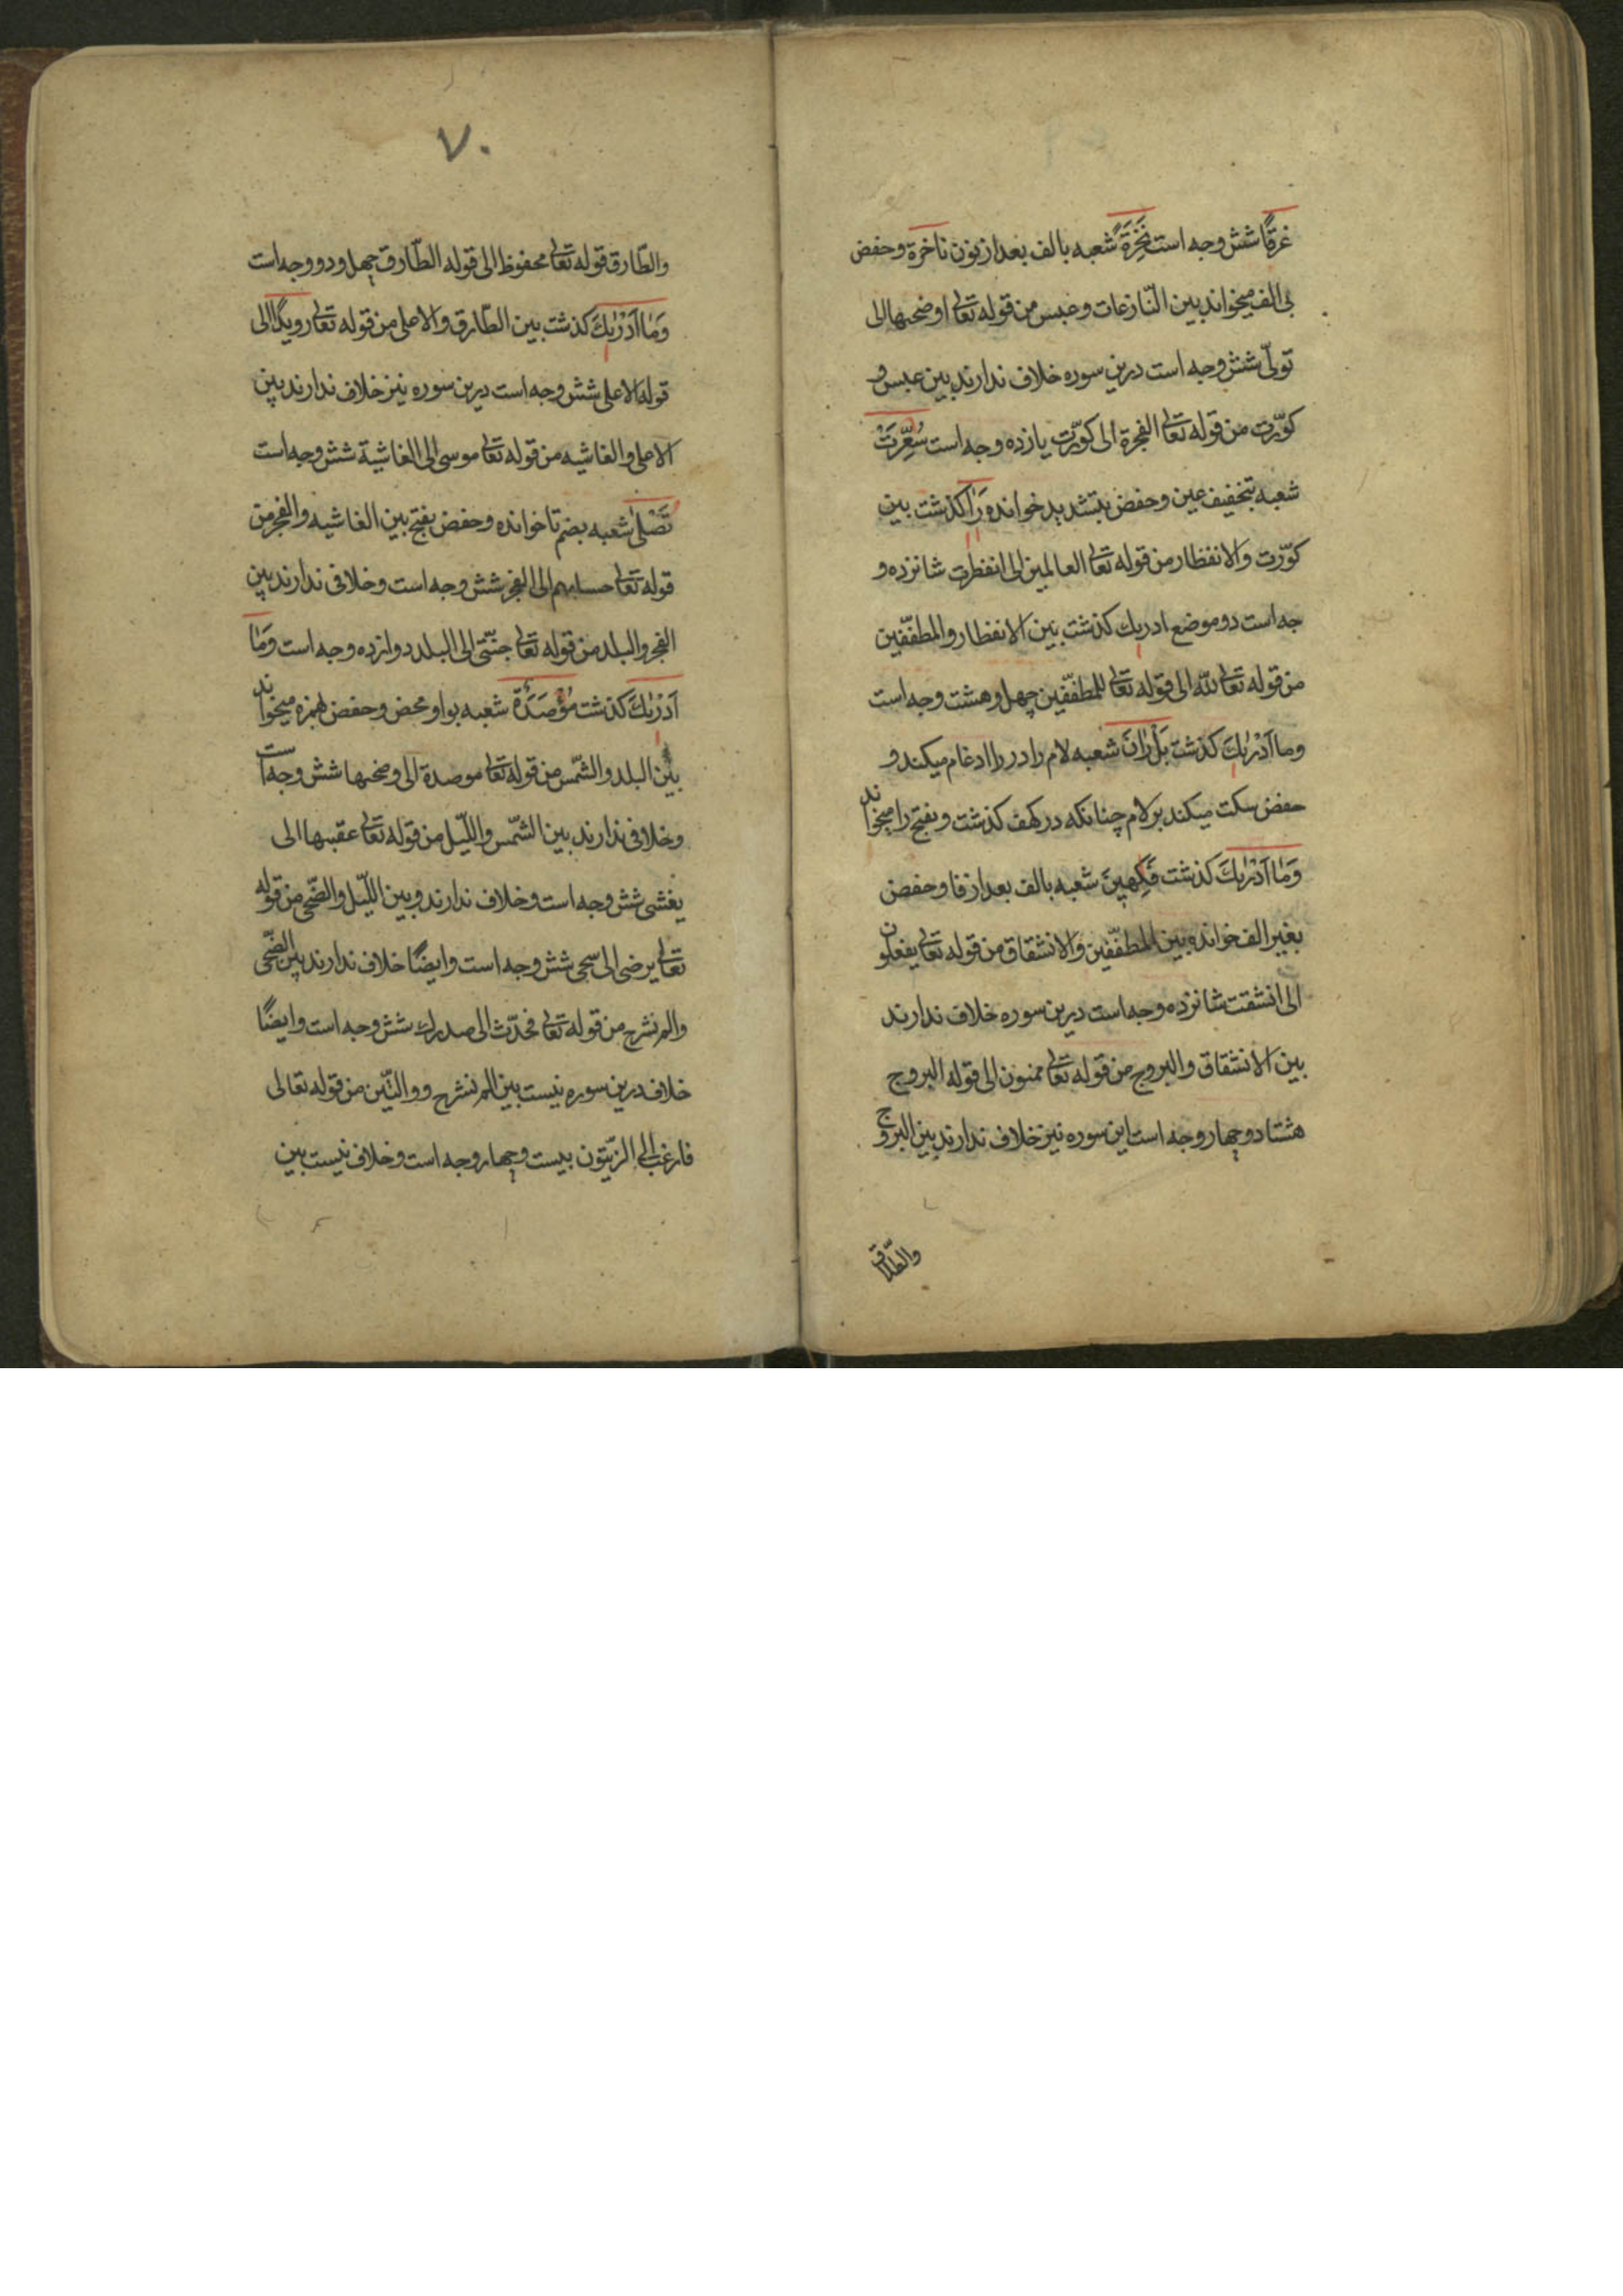 غرقًا شش وجه است نَخِرَةً شعبه بالف بعد از نون ناخرة و حفض
بی الف میخواند بین النّازعات و عبس من قوله تعالی اوضحیها الی
تولّی شش وجه است درین سوره خلاف ندارند بین عبس و
کوّرت من قوله تعالی الفجرة الی کوّرت یازده وجه است سُعِّرَتْ
شعبه بتخفیف عین و حفض بتشدید خوانده رَاٰ کذشت بین
کوّرت و الانفطار من قوله تعالی العالمین الی انفطرت شانزده و
جه است دو موضع ادریٰك کذشت بین الانفطار و المطفّفین
من قوله تعالی للّه الی قوله تعالی للمطفّفین چهل و هشت وجه است
وما اَدْرٰیكَ کذشت بَلْ رٰانَ شعبه لام را در را ادغام میکند و
حفض سکت میکند بر لام چنانکه در کهف کذشت و بفتح را میخواند
وَمٰا اَدْرٰیكَ کذشت فَكِهِينَ شعبه بالف بعد از فا و حفض
بغیر الف خوانده بین المطفّفین و الانشقاق من قوله تعالی یفعلون
الی انشقت شانزده وجه است درین سوره خلاف ندارند
بین الانشقاق و البروج من قوله تعالی ممنون الی قوله البروج
هشتاد و چهار وجه است این سوره نیز خلاف ندارند بین البروج و
والطّارق
٧٠
والطّارق قوله تعالی محفوظ الی قوله الطّارق چهل و دو وجه است
وَمٰا اَدْرٰیكَ کذشت بین الطّارق و الاعلی من قوله تعالی رویدًا الی
قوله الاعلی شش وجه است درین سوره نیز خلاف ندارند بین
الاعلی و الغاشیه من قوله تعالی موسی الی الغاشیة شش وجه است
تَصْلٰی شعبه بضم تا خوانده و حفض بفتح بین الغاشیه و الفجر من
قوله تعالی حسابهم الی الفجر شش وجه است و خلافی ندارند بین
الفجر و البلد من قوله تعالی جنّتی الی البلد دوازده وجه است وَمٰا
اَدْرٰیكَ کذشت مُؤْصَدَةٌ شعبه بواو محض و حفض بهمزه میخواند
بین البلد و الشّمس من قوله تعالی موصدة الی وضحیها شش وجه است
و خلافی ندارند بین الشّمس و اللّیل من قوله تعالی عقبیها الی
یغشی شش وجه است و خلاف ندارند و بین اللّیل و الضّحی من قوله
تعالی یرضی الی سجی شش وجه است و ایضًا خلاف ندارند بین الضّحی
و الم نشرح من قوله تعالی فحدّث الی صدرك شش وجه است و ایضًا
خلاف درین سوره نیست بین الم نشرح و والتّین من قوله تعالی
فارغب الی الزّیتون بیست و چهار وجه است و خلاف نیست بین